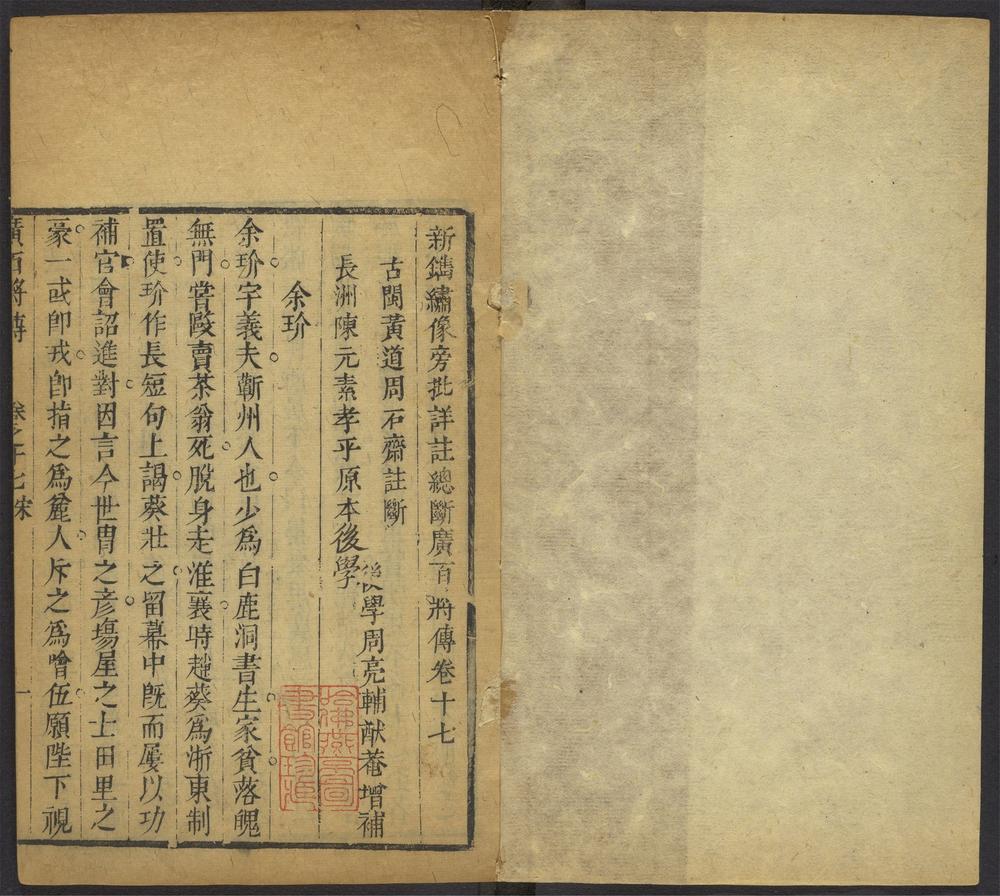 新鐫繡像旁批詳註總斷廣百將傳卷十七
古閩黃道周石齋註斷
長洲陳元素孝平原本後學
後學周亮輔猷菴增補
余玠
余玠字義夫蘄州人也少爲白鹿洞書生家貧落魄
無門嘗毆賣茶翁死脫身走淮襄時趙葵爲淛東制
置使玠作長短句上謁葵壯之留幕中旣而屢以功
補官會詔進對因言今世胄之彥塲屋之士田里之
豪一或卽戎卽指之爲麄人斥之爲噲伍願陛下視
廣百將傳 卷之十七宋 一
哈佛燕京圖書館珍藏